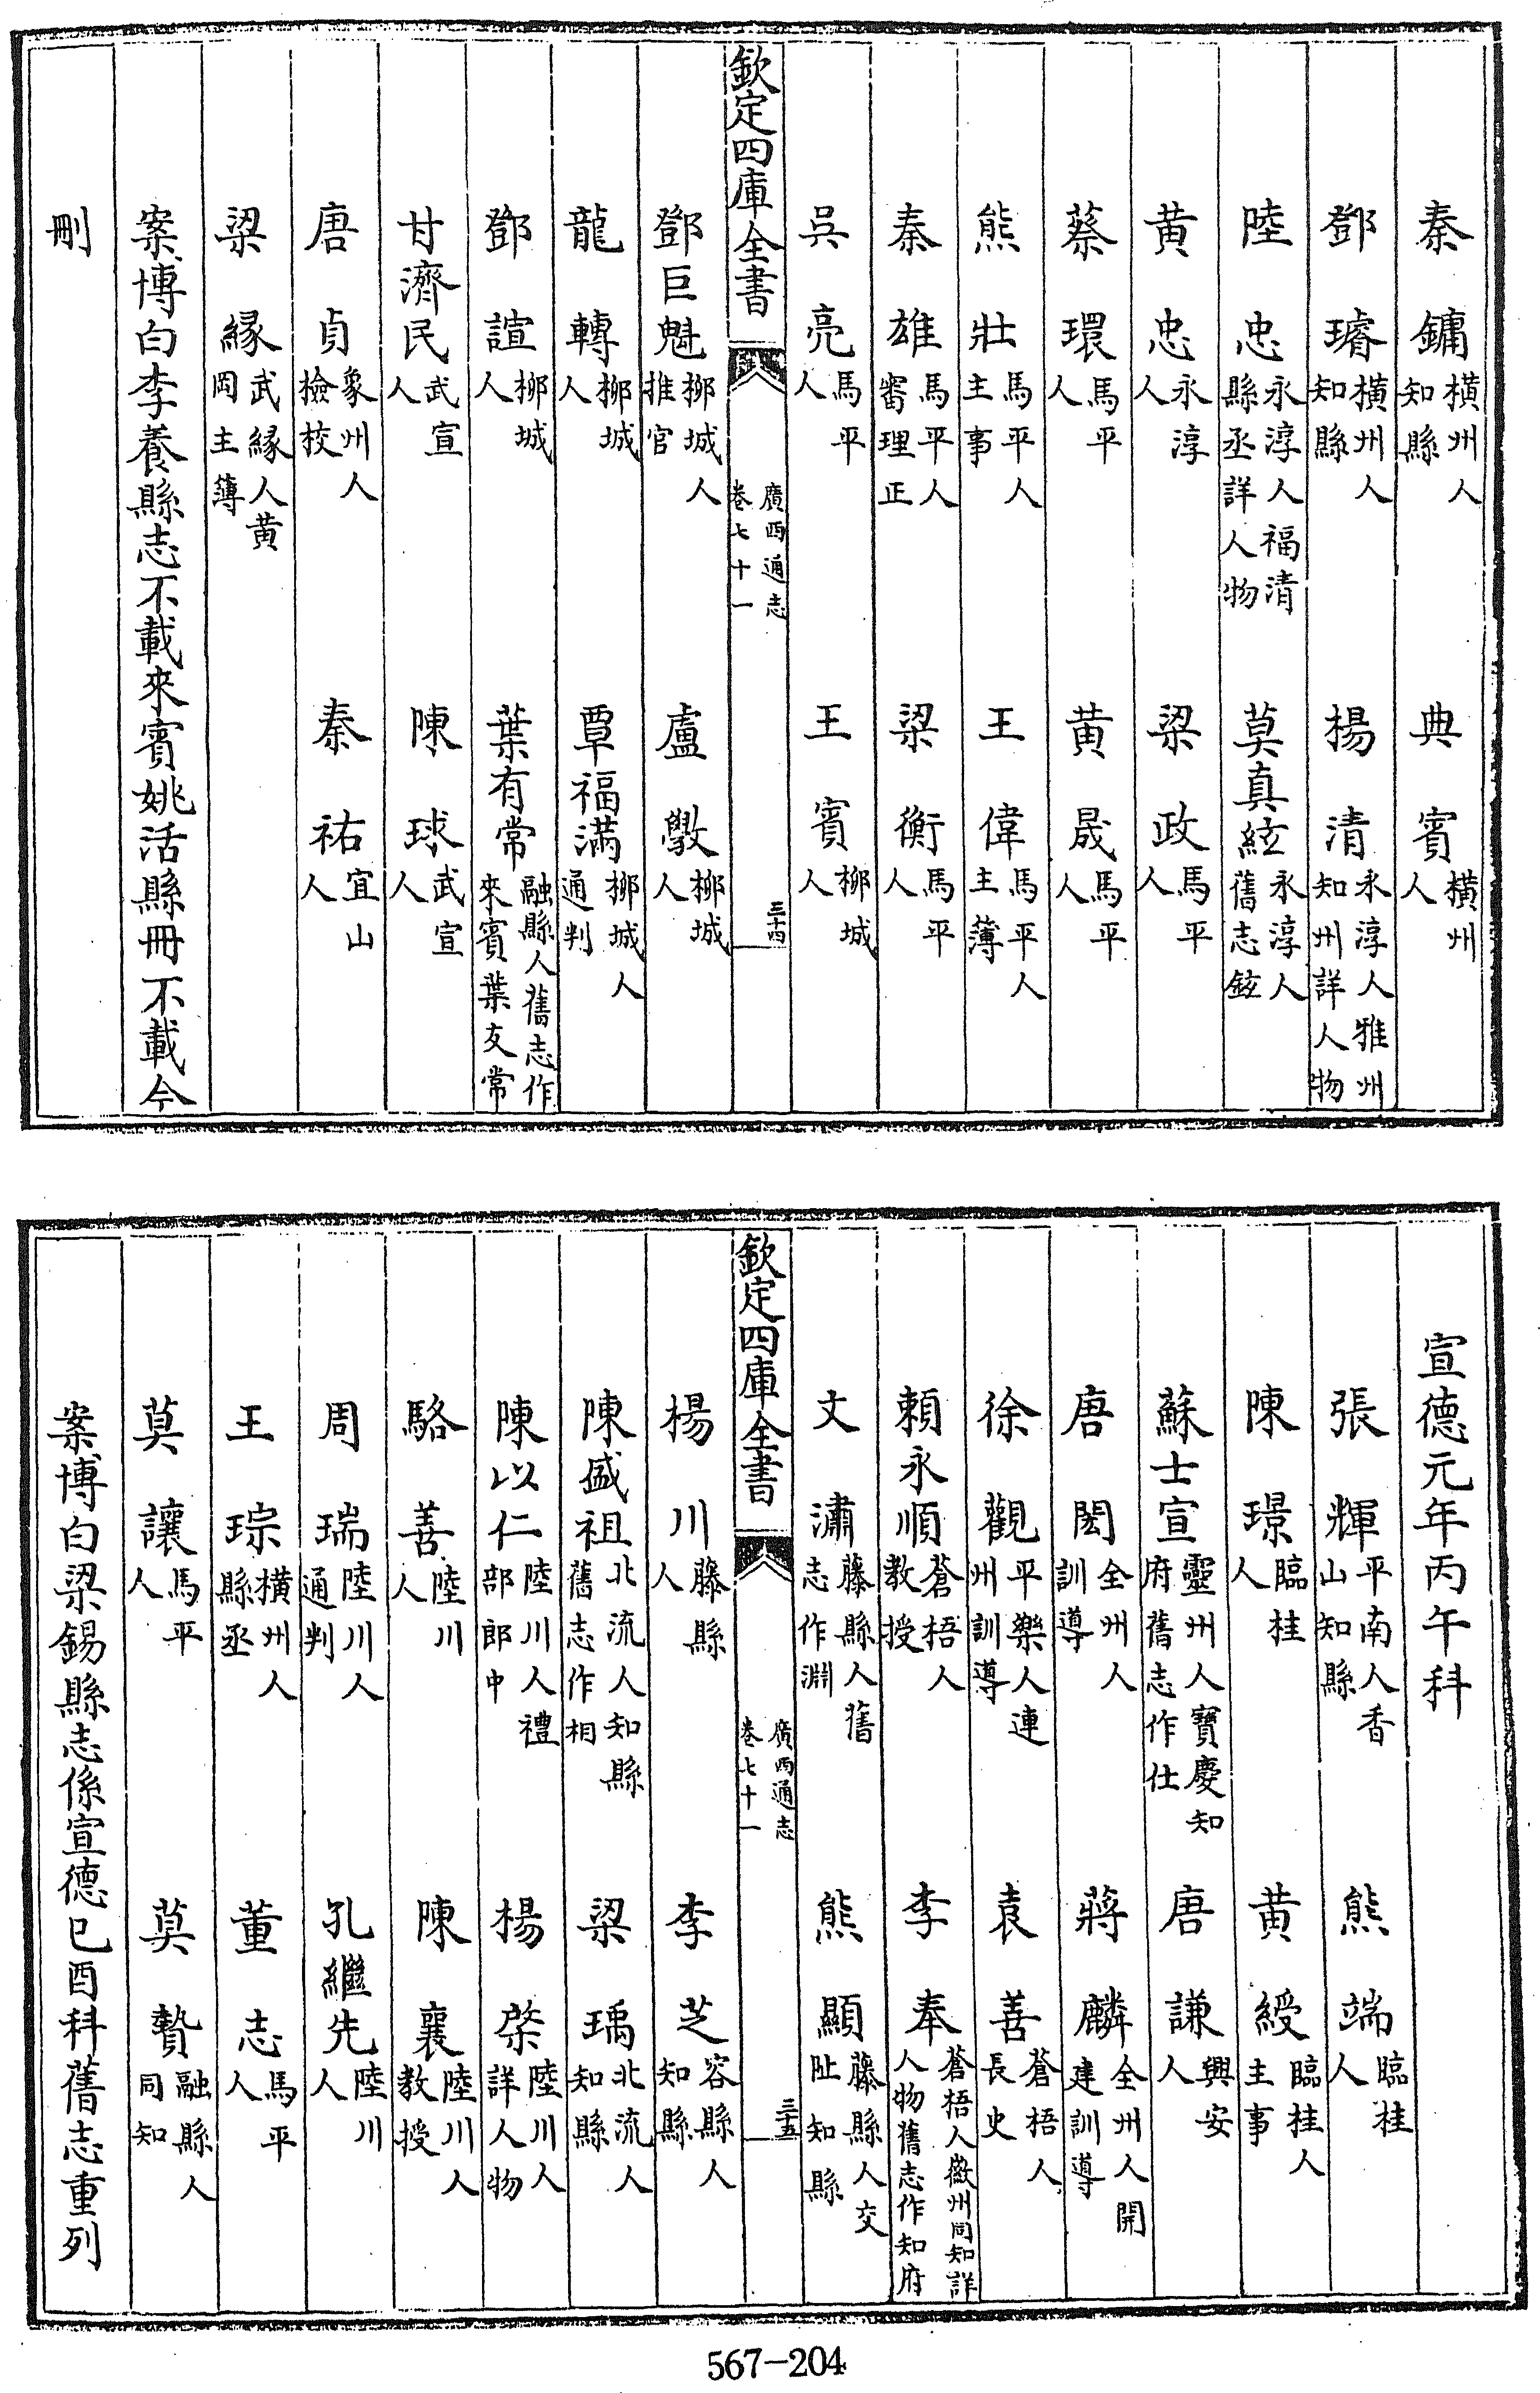 秦鏞橫州人知縣　典賓橫州人
鄧璿橫州人知縣　楊清永淳人雅州知州詳人物
陸忠永淳人福清縣丞詳人物　莫真絃永淳人舊志鉉
黃忠永淳人　梁政馬平人
蔡環馬平人　黃晟馬平人
熊壯馬平人主事　王偉馬平人主薄
秦雄馬平人審理正　梁衡馬平人
吳亮馬平人　王賓柳城人
欽定四庫全書　廣西通志卷七十一　三十四
鄧巨魁柳城人推官　盧斆柳城人
龍轉柳城人　覃福滿柳城人通判
鄧諠柳城人　葉有常融縣人舊志作來賓葉友常
甘濟民武宣人　陳球武宣人
唐貞象州人檢校　秦祐宜山人
梁緣武緣人黃岡主薄
案博白李養縣志不載來賓姚活縣冊不載今
刪
宣德元年丙午科
張輝平南人香山知縣　熊端臨桂人
陳璟臨桂人　黃綬臨桂人主事
蘇士宣靈州人寶慶知府舊志作仕　唐謙興安人
唐閎全州人訓導　蔣麟全州人開建訓導
徐觀平樂人連州訓導　袁善蒼梧人長史
賴永順蒼梧人教授　李奉蒼梧人徽州同知詳人物舊志作知府
文潚藤縣人舊志作淵　熊顯藤縣人交阯知縣
欽定四庫全書　廣西通志卷七十一　三十五
楊川藤縣人　李芝容縣人知縣
陳盛祖北流人知縣舊志作相　梁瑀北流人知縣
陳以仁陸川人禮部郎中　楊棨陸川人詳人物
駱善陸川人　陳襄陸川人教授
周瑞陸川人通判　孔繼先陸川人
王琮橫州人縣丞　董志馬平人
莫讓馬平人　莫贊融縣人同知
案博白梁錫縣志係宣德已酉科舊志重列
567-204